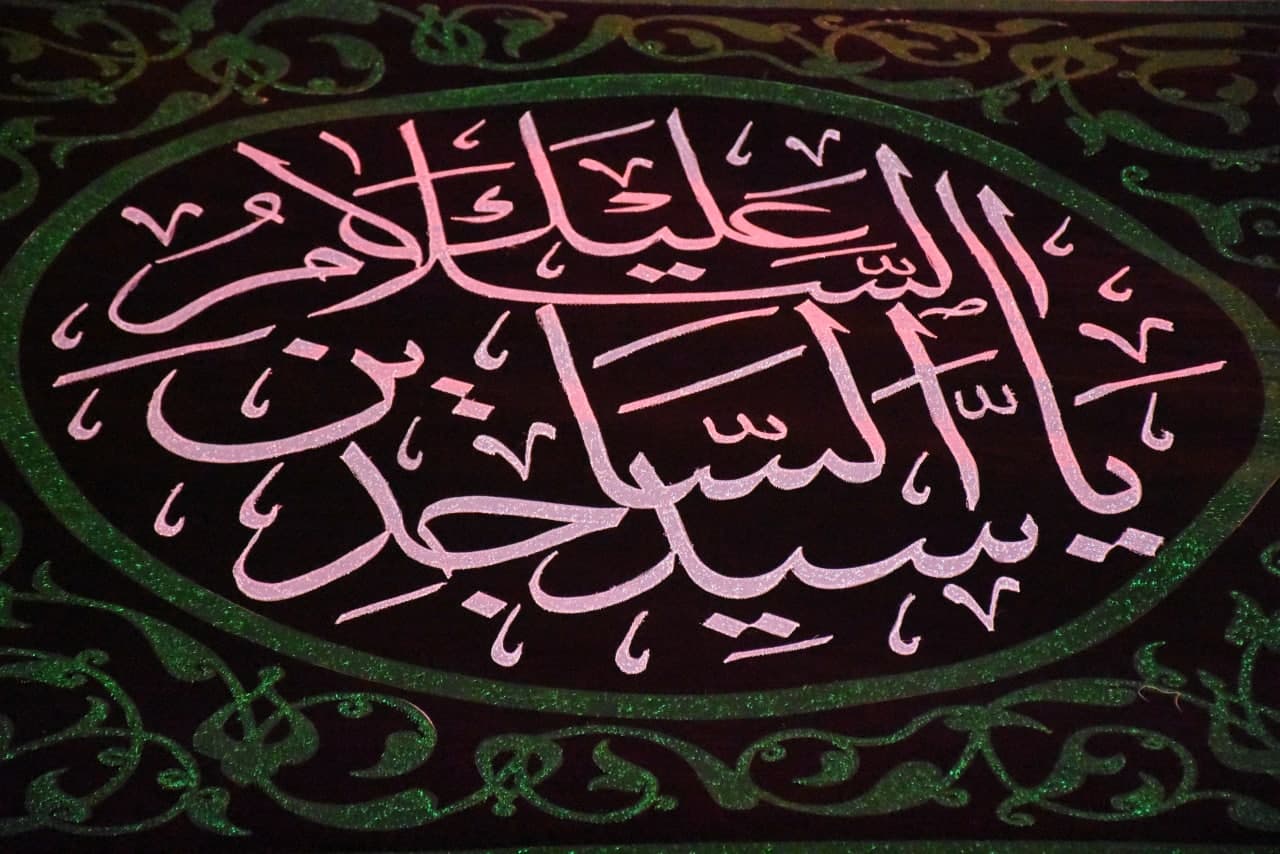 السلام عليك
يا سيد الساجدين